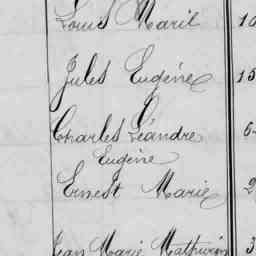 Louis Marie 10
Jules Eugène 15
Charles Léandre
Eugène
Ernest Marie 2
Jean Marie Mathurin 3